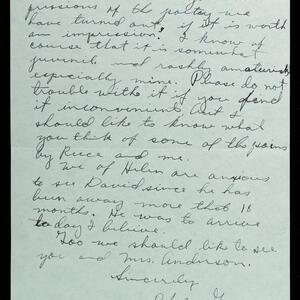 pressions of the poetry we
have turned out, if it is worth
an impression. I know of
course that it is somewhat
juvenile and rashly amateurish
especially mine. Please do not
trouble with it if you find
it inconvenient but I
should like to know what
you think of some of the poems
by Reece and me.
We of Helen are anxious
to see David since he has
been away more that 18
months. He was to arrive
today I believe.
Too we should like to see
you and Mrs. Anderson.
Sincerely